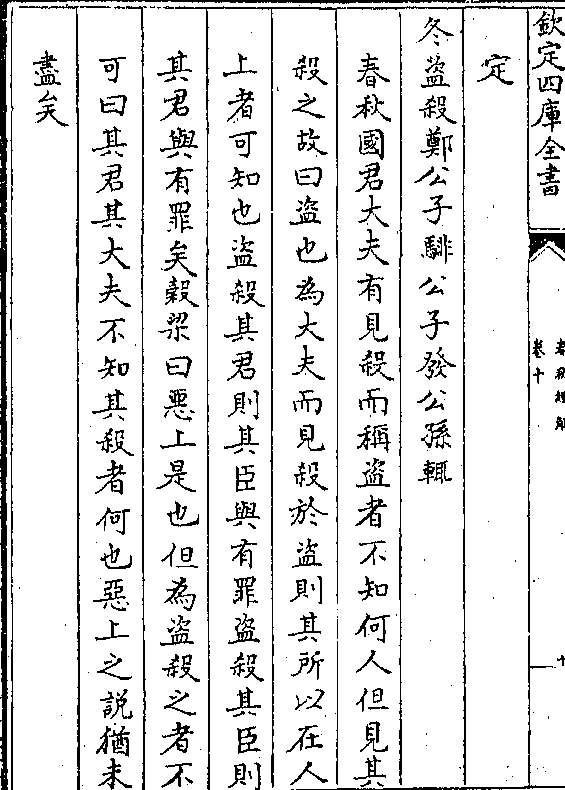 欽定四庫全書
春秋經解
卷十
十
定
冬盜殺鄭公子騑公子發公孫輒
春秋國君大夫有見殺而稱盜者不知何人但見其
殺之故曰盜也為大夫而見殺於盜則其所以在人
上者可知也盜殺其君則其臣與有罪盜殺其臣則
其君與有罪矣穀梁曰惡上是也但為盜殺之者不
可曰其君其大夫不知其殺者何也惡上之説猶未
盡矣